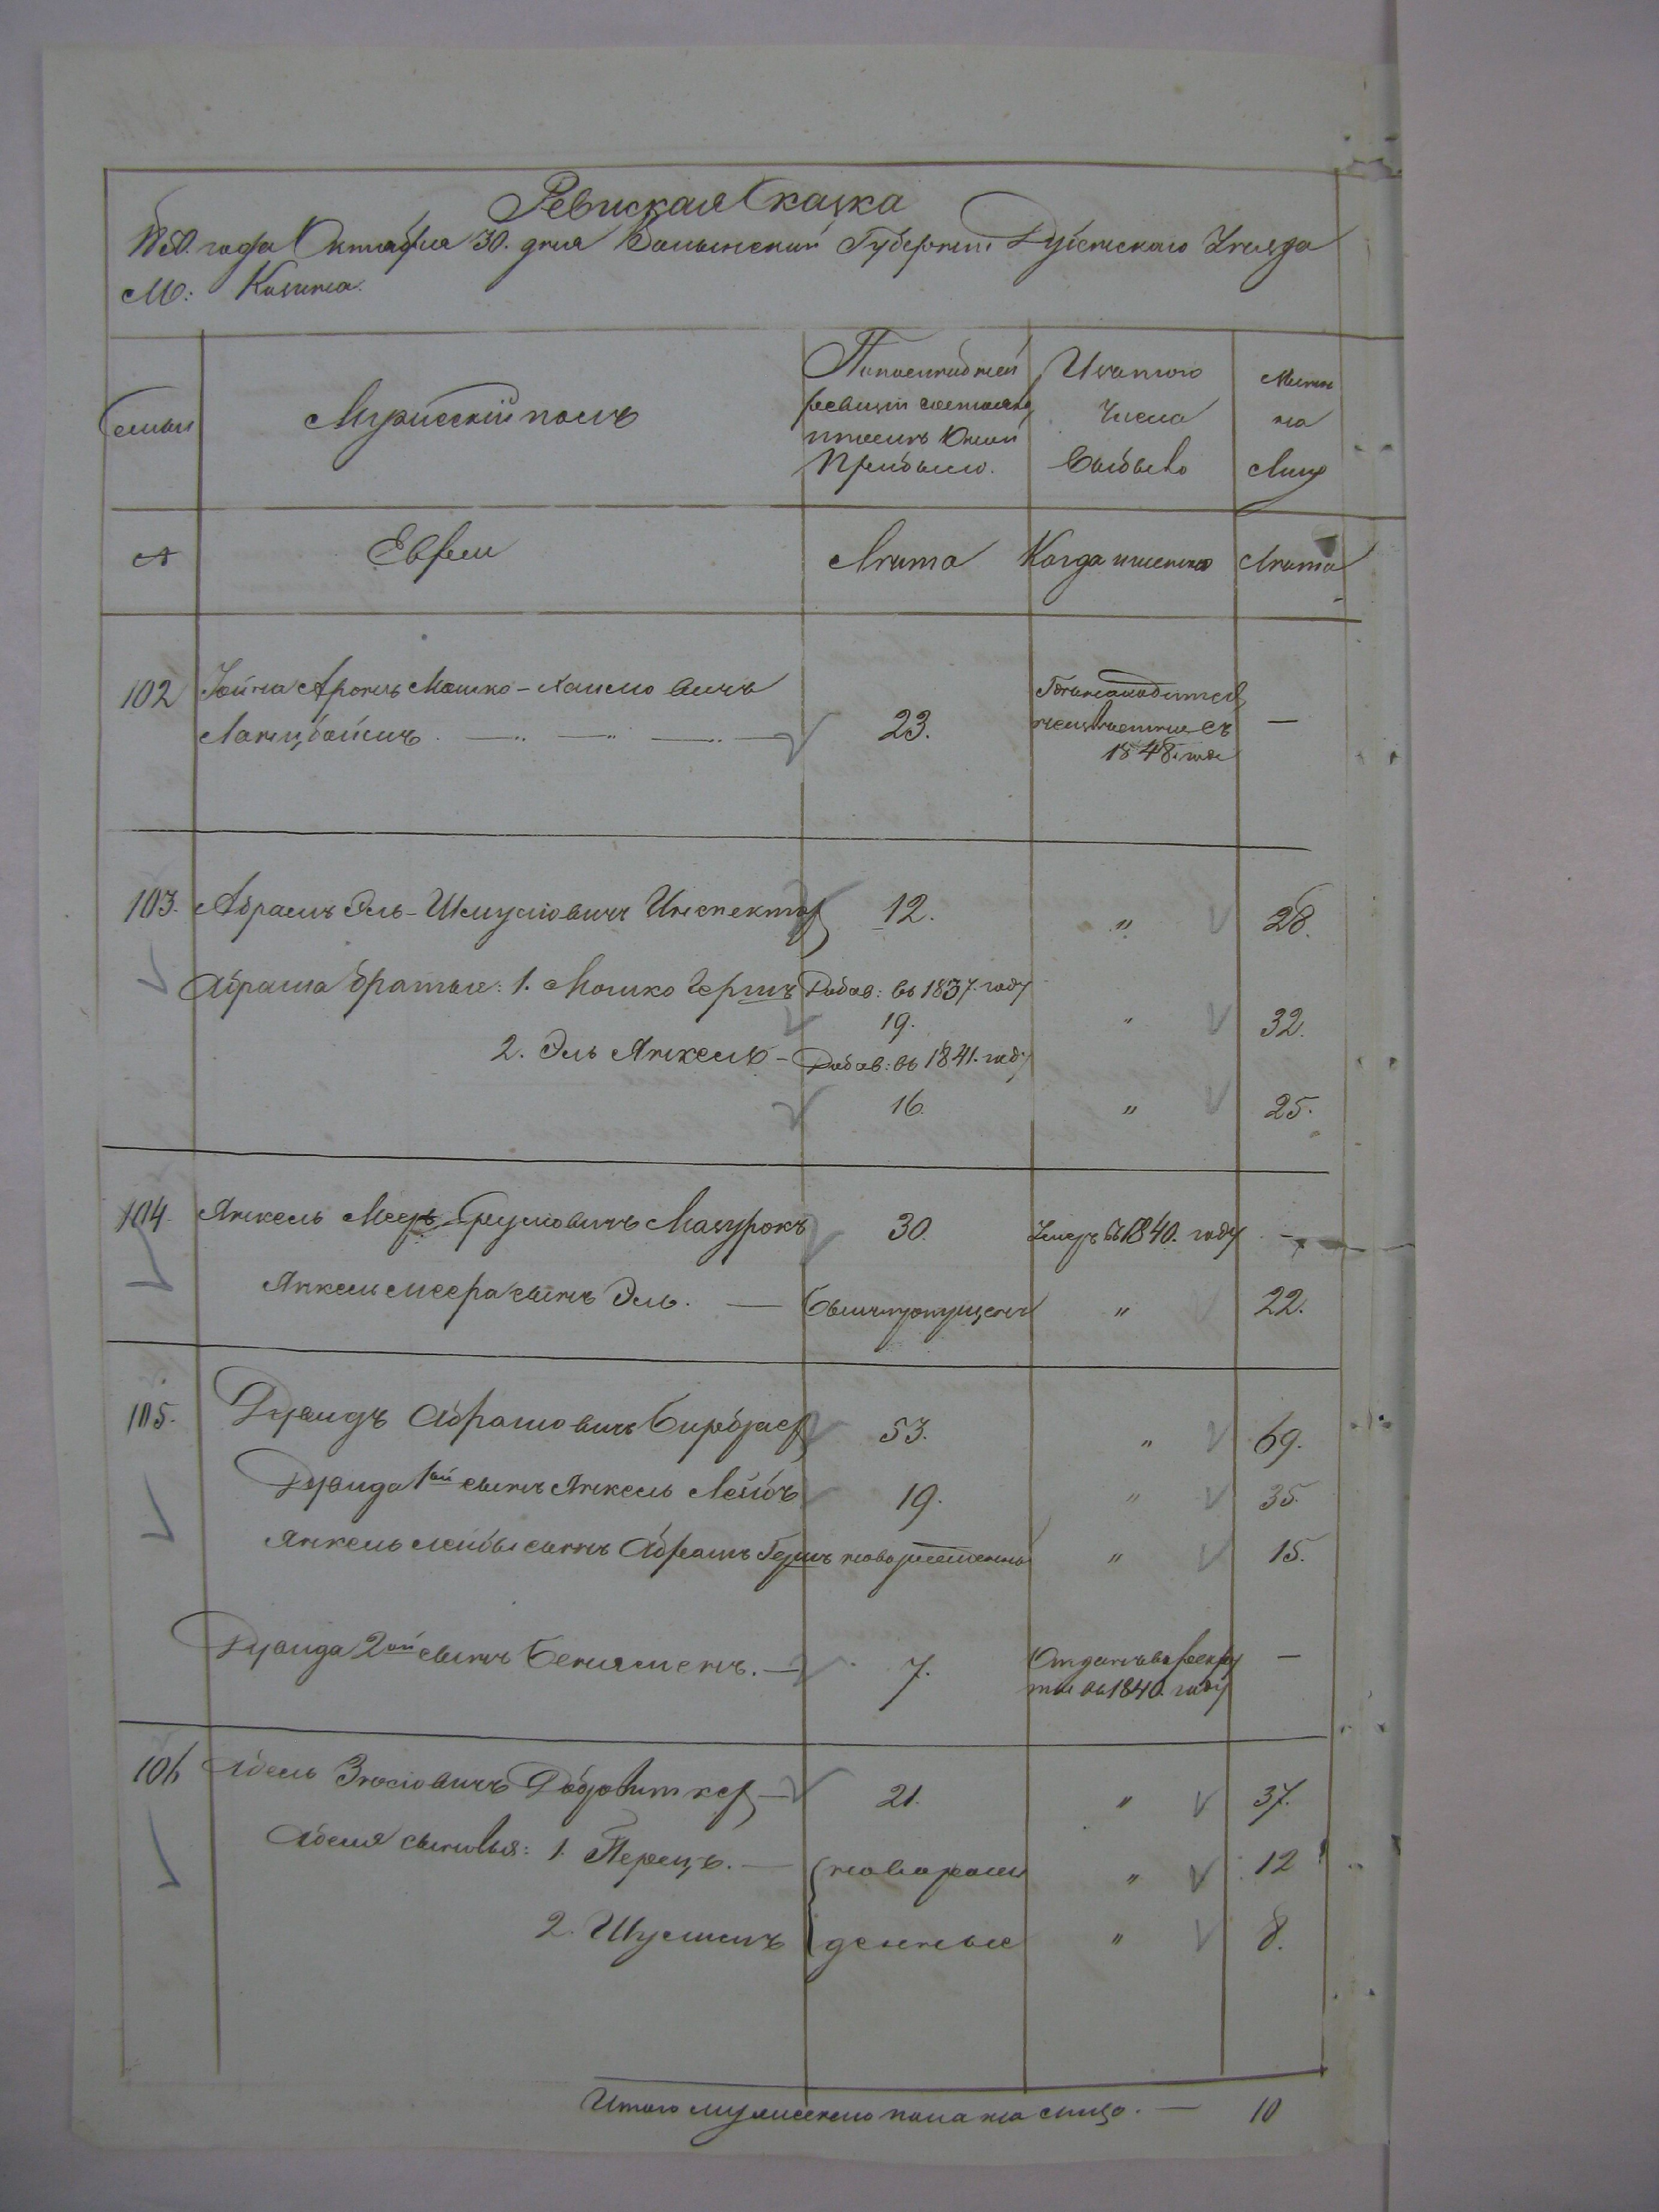 Ревиская Сказка
1850. года Октября 30. дня Волынской Губернии Дубенскаго Уезда
М: Козина.
Семьи
Мужеский полъ
По последней
ревизии состояло
и после оной
Прибыло.
Из того
Числа
Выбыло
Ныне
на
Лицо
№
Евреи
Лета
Когда именно
Лета
102
Іойна Аронъ Мошко-Хаимовичъ
Ланцбоймъ
23.
неизвестно съ
1848. года
—
103.
Абрамъ Эль-Шмуловичъ Инспектор
12.
"
28.
Абрама братья: 1. Мошко Герш
Добав: въ 1837. году
19.
"
32.
2. Эль Янкель -
Добав: въ 1841. году
16.
"
25.
104.
Янкель Меер Сруловичъ Мазурокъ
30.
Умеръ въ 1840. году
—
Янкель меера сынъ Эль. —
былъ пропущенъ
"
22.
105.
Дувидъ Абрамовичъ Бирбраер
53.
"
69.
Дувида 1ой сынъ Янкель Лейбъ
19.
"
35.
Янкель лейбы сынъ Абрамъ Гершъ
новорожденный
"
15.
Дувида 2ой сынъ Бениаминъ. —
7.
Отданъ въ рекру
ты въ 1840. году
—
106
Абель Зюсіовичъ
21.
"
37.
Абеля сыновья: 1. Перецъ. —
новорож
"
12
2. Шулимъ
денные
"
8.
Итого мужескаго пола на лицо. —
10